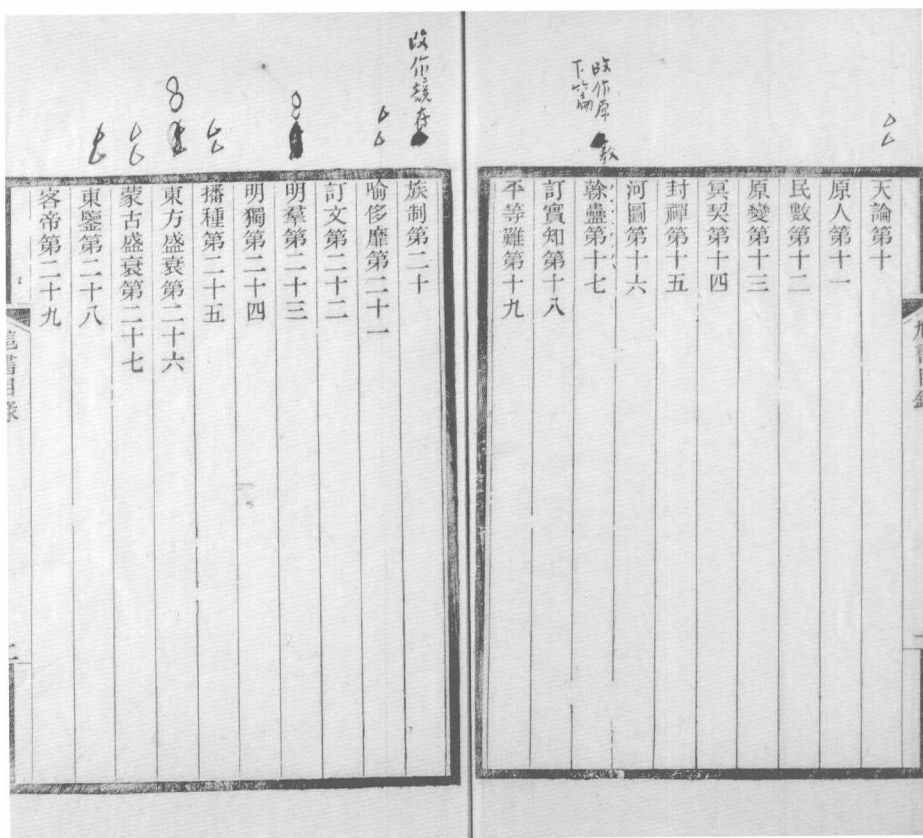 天論第十
原人第十一
民數第十二
原變第十三
冥契第十四
封禪第十五
河圖第十六
改作原教
下篇
榦蠱第十七
訂實知第十八
平等難第十九
改作競存
族制第二十
喻侈靡第二十一
訂文第二十二
明羣第二十三
明獨第二十四
播種第二十五
東方盛衰第二十六
蒙古盛衰第二十七
東鑒第二十八
客帝第二十九
書目錄